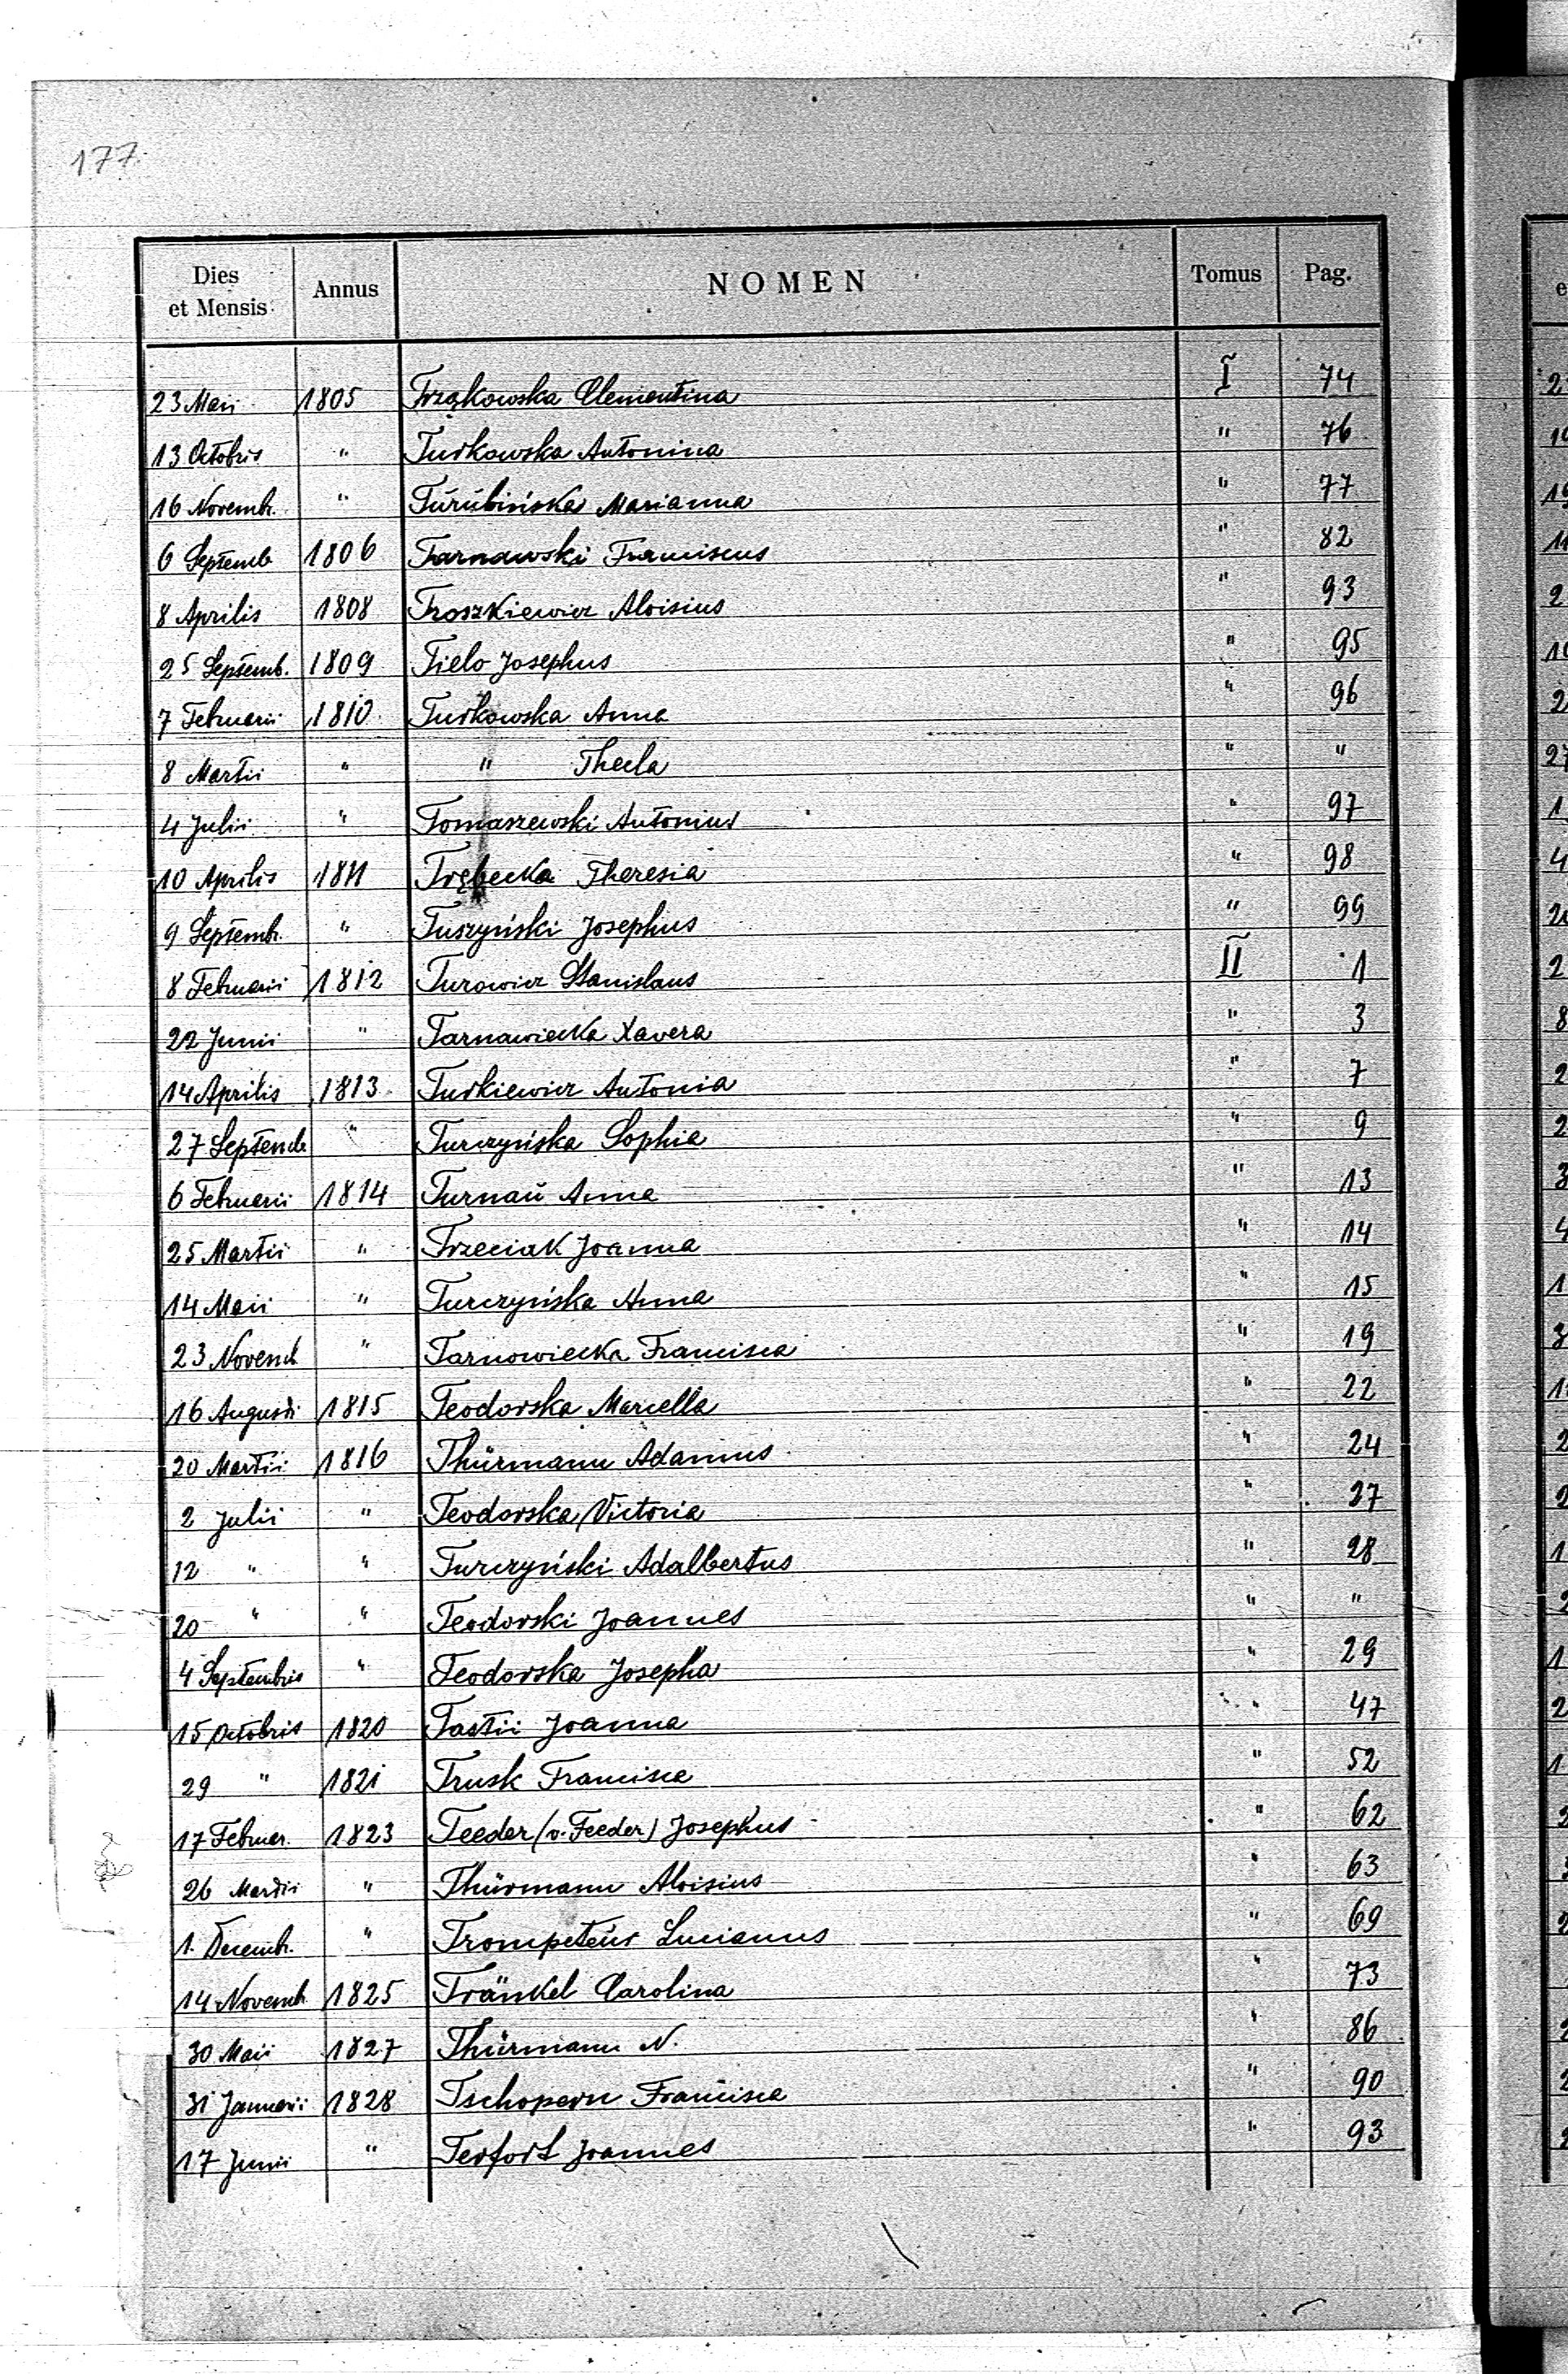 177
Dies et Mensis Annus NOMEN Tomus Pag.
23 Maii 1805 Trząkowska Clementina I 74
13 Octobris " Turkowska Antonina " 76
16 Novemb. " Turubińska Marianna " 77
6 Septemb 1806 Tarnawski Franciscus " 82
8 Aprilis 1808 Troszkiewicz Aloisius " 93
25 Septemb. 1809 Tielo Josephus " 95
7 Februarii 1810 Turkowska Anna " 96
8 Martii " " Thecla " "
4 Julii " Tomaszewski Antonius " 97
10 Aprilis 1811 Trębecka Theresia " 98
9 Septemb. " Tuszyński Josephus " 99
8 Februarii 1812 Turowicz Stanislaus II 1
22 Junii " Tarnawiecka Xavera " 3
14 Aprilis 1813 Turkiewicz Antonia " 7
27 Septemb. " Turczyńska Sophia " 9
6 Februarii 1814 Turnau Anna " 13
25 Martii " Trzeciak Joanna " 14
14 Maii " Turczyńska Anna " 15
23 Novemb " Tarnowiecka Francisca " 19
16 Augusti 1815 Teodorska Marcella " 22
20 Martii 1816 Thürmann Adamus " 24
2 Julii " Teodorska Victoria " 27
12 " " Turczyński Adalbertus " 28
20 " " Teodorski Joannes " "
4 Septembris " Teodorska Josepha " 29
15 Octobris 1820 Tastii Joanna " 47
29 " 1821 Trusk Francisca " 52
17 Februar. 1823 Teeder (v. Feeder) Josephus " 62
26 Martii " Thürmann Aloisius " 63
1. Decemb. " Trompeteur Lucianus " 69
14 Novemb 1825 Tränkel Carolina " 73
30 Maii 1827 Thürmann N. " 86
31 Januarii 1828 Tschopern Francisca " 90
17 Junii " Terfort Joannes " 93